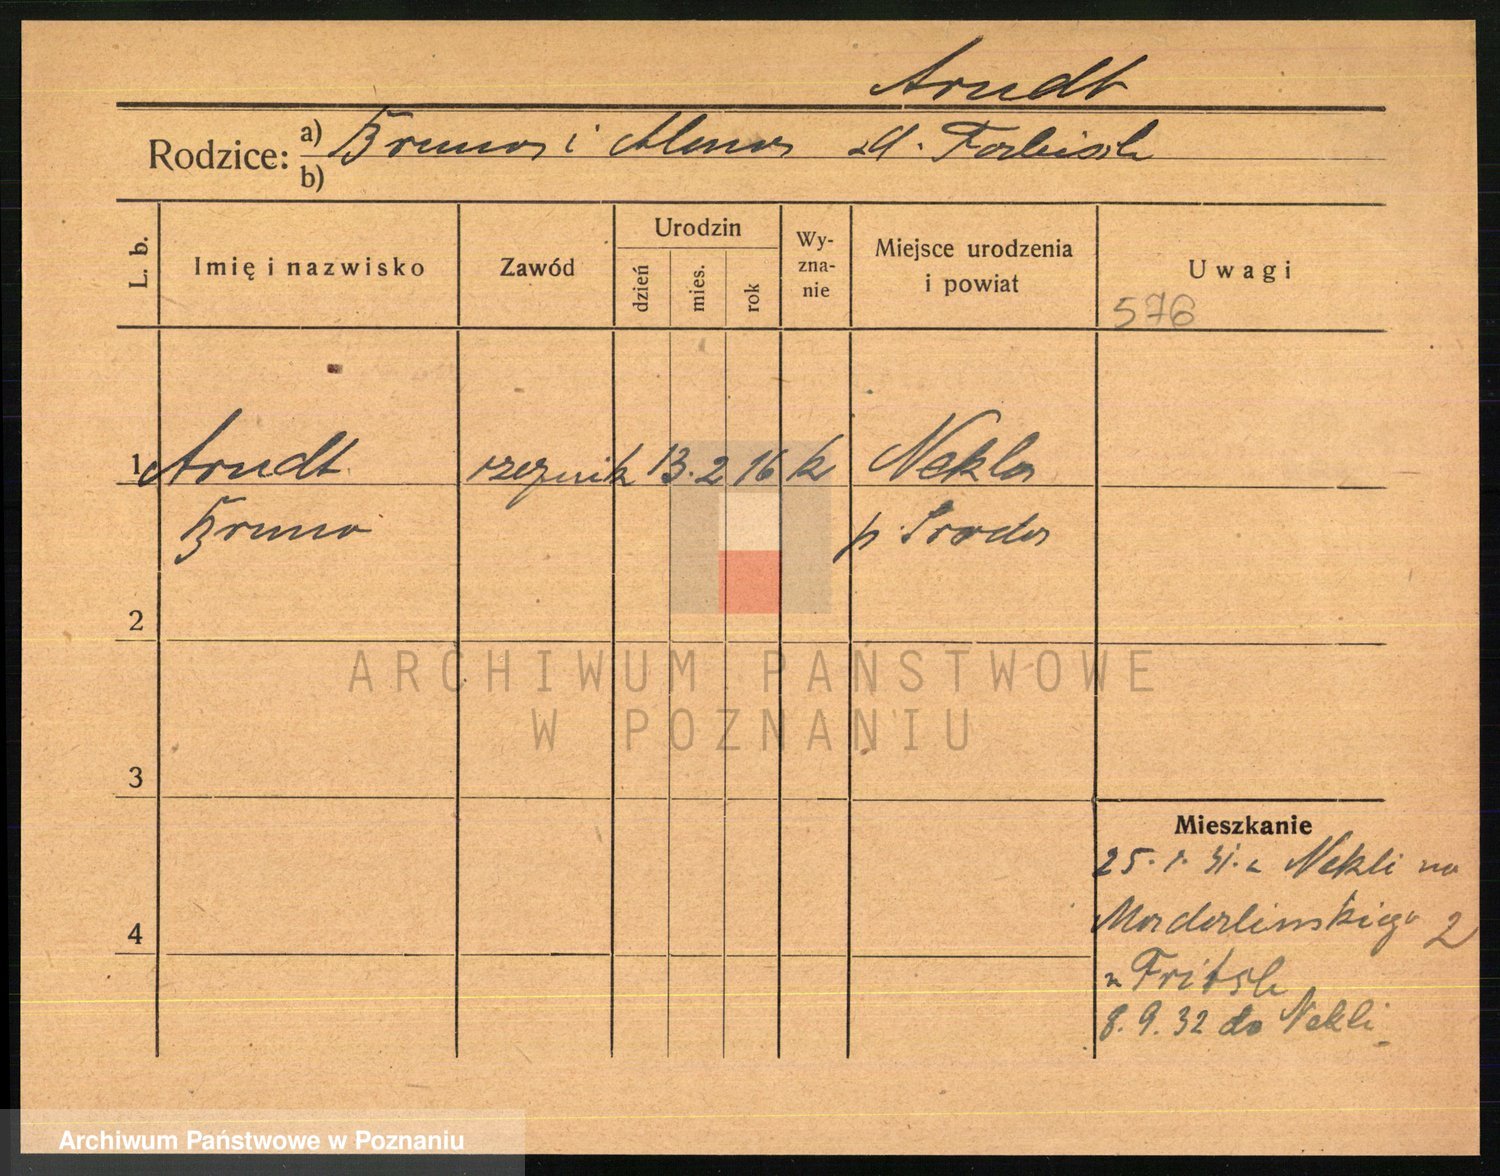 Arndt
Rodzice: a) Bruno i
b)
L. b.
Imię i nazwisko
Zawód
Urodzin
dzień
mies.
rok
Wy-
zna-
nie
Miejsce urodzenia
i powiat
Uwagi
576
1 Arndt rzeźnik 13. 2 16 k Nekla
Bruno p. Środa
2
3
4
Mieszkanie
25. 1. 31. z Nekli na
2
8. 9. 32 do Nekli
ARCHIWUM PAŃSTWOWE
W POZNANIU
Archiwum Państwowe w Poznaniu